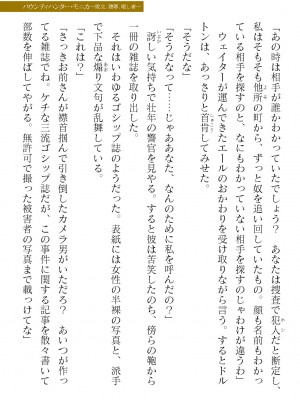 バウンティハンター・モニカ～
「あの時は相手が誰かわかっていたでしょう？　あなたは捜査で犯人だと断定し、
私はそもそも他所の町から、ずっと奴を追い回していたもの。顔も名前もわかっ
ている相手を探すのと、なにもわかっていない相手を探すのじゃわけが違うわ」
ウェイターが運んできたエールのおかわりを受け取りながら言う。するとドル
トンは、あっさりと首肯してみせた。
「そうだな」
「そうだなって……じゃああなた、なんのために私を呼んだの？」
訝しい気持ちで壮年の警官を見やる。すると彼は苦笑したのち、傍らの鞄から
一冊の雑誌を取り出した。
それはいわゆるゴシップ誌のようだった。表紙には女性の半裸の写真と、派手
で下品な煽り文句が乱舞している。
「これは？」
「さっきお前さんが襟首掴んで引き倒したカメラ男がいただろ？　あいつが作っ
てる雑誌でね。ケチな三流ゴシップ誌だが、この事件に関する記事を散々書いて
部数を伸ばしてやがる。無許可で撮った被害者の写真まで載っけてな」